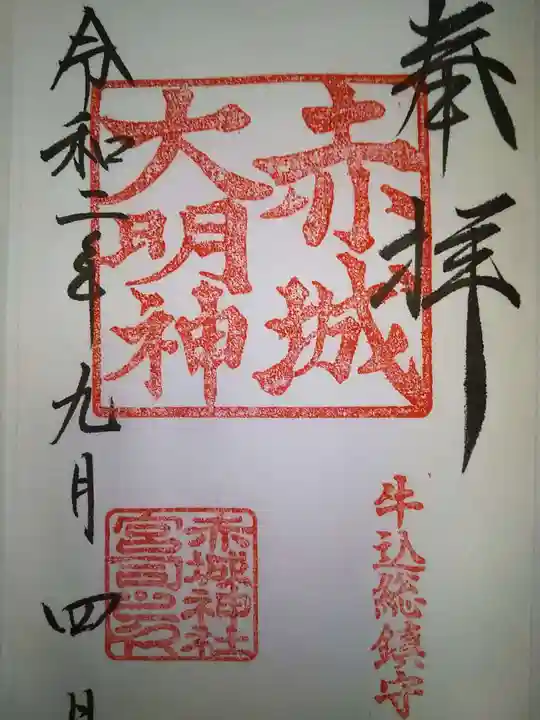 奉拝
赤城
大明神
牛込総鎮守
赤城神社
宮司之印
令和二年九月四日